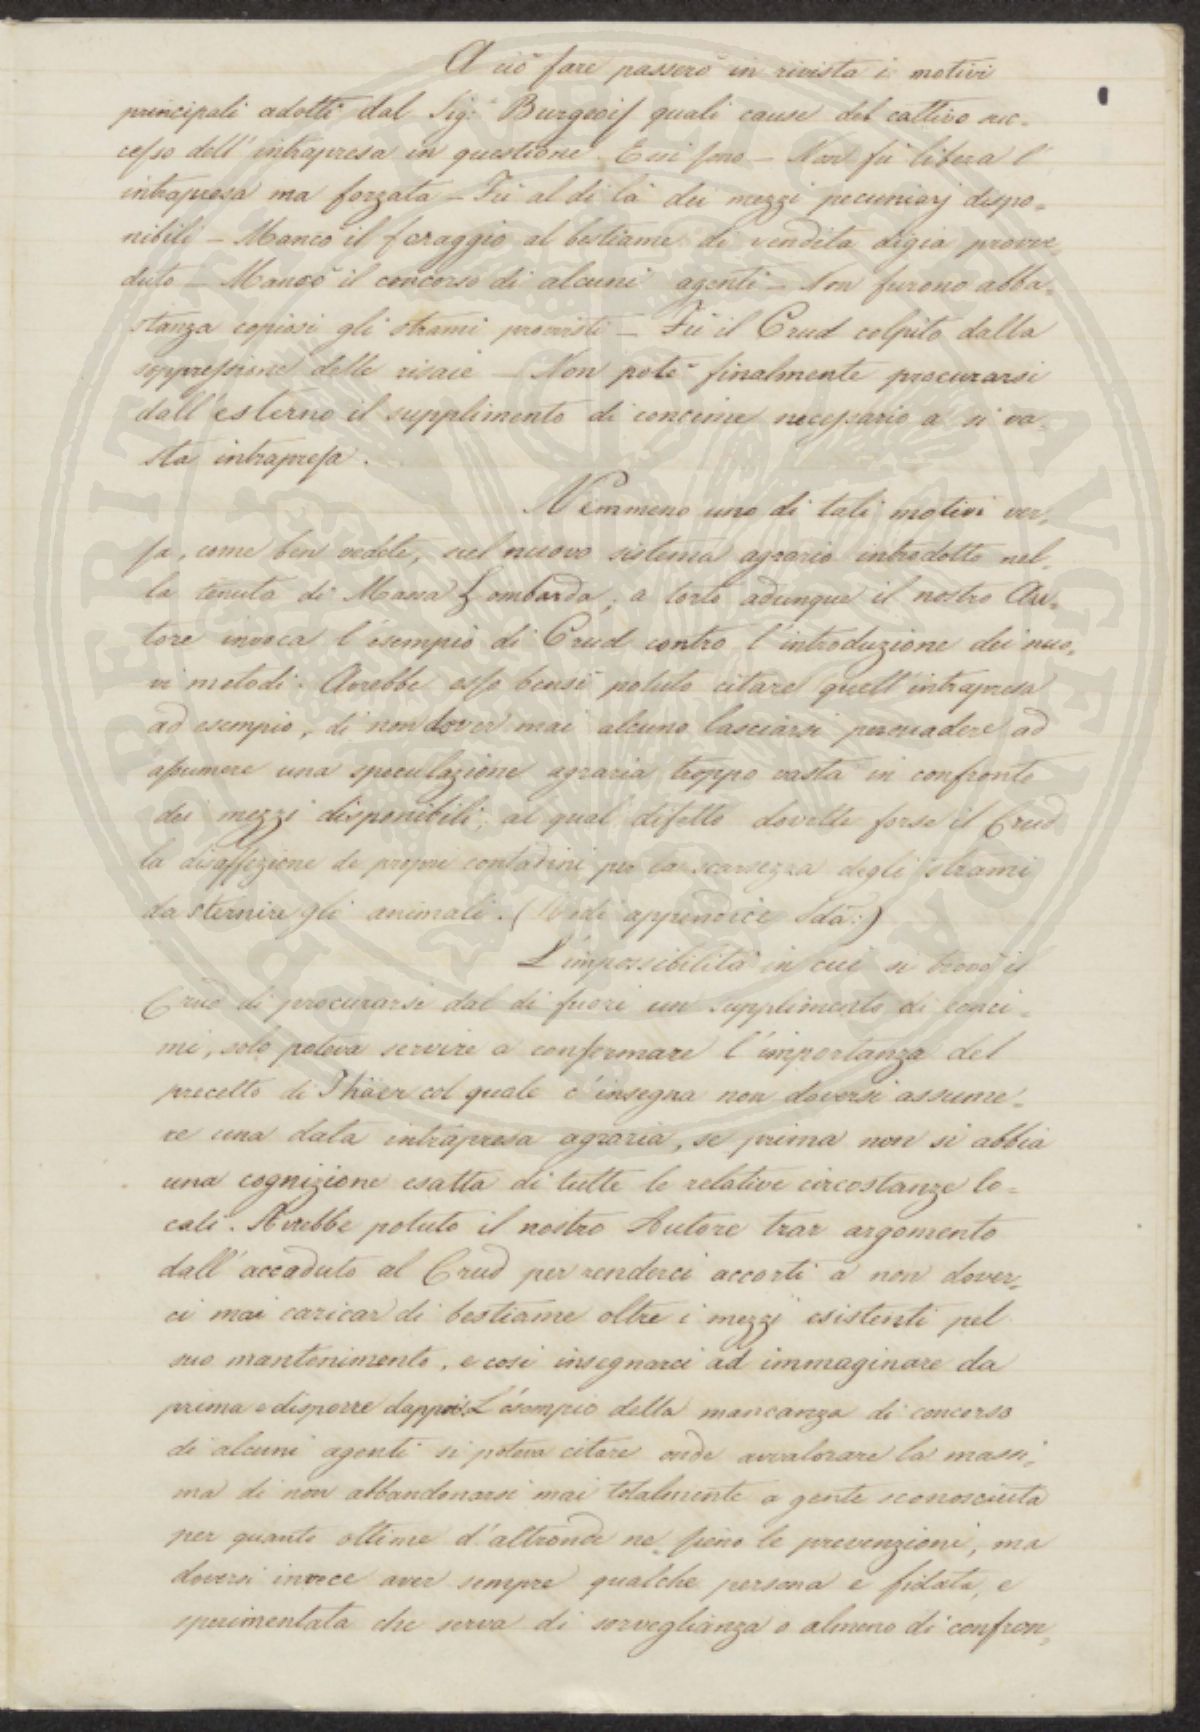 A ciò fare passerò in rivista i motivi
principali adotti dal Sig: Burgeois quali cause del cattivo suc-
cesso dell'intrapresa in questione. Essi sono — Non fù libera l'
intrapresa ma forzata — Fù al di là dei mezzi pecuniarj dispo-
nibili — Mancò il foraggio al bestiame di vendita digià provve-
duto — Mancò il concorso di alcuni agenti — Non furono abba-
stanza copiosi gli strami provvisti — Fù il Crud colpito dalla
soppressione delle risaie — Non potè finalmente procurarsi
dall'esterno il supplimento di concime necessario a sì va-
sta intrapresa.
Nemmeno uno di tali motivi ver-
sa, come ben vedete, sul nuovo sistema agrario introdotto nel-
la tenuta di Massa Lombarda; a torto adunque il nostro Au-
tore invoca l'esempio di Crud contro l'introduzione dei nuo-
vi metodi. Avrebbe esso bensì potuto citare quell'intrapresa
ad esempio, di non dover mai alcuno lasciarsi persuadere ad
assumere una speculazione agraria troppo vasta in confronto
dei mezzi disponibili, al qual difetto dovette forse il Crud
la disaffezione de proprj contadini per la scarsezza degli strami
da sternire gli animali. (Vedi appendice Idã:)
L'impossibilità in cui si trovò il
Crud di procurarsi dal di fuori un supplimento di conci-
mi, solo poteva servire a confermare l'importanza del
precetto di Thäer col quale c'insegna non doversi assume-
re una data intrapresa agraria, se prima non si abbia
una cognizione esatta di tutte le relative circostanze lo-
cali. Avrebbe potuto il nostro Autore trar argomento
dall'accaduto al Crud per renderci accorti a non dover-
ci mai caricar di bestiame oltre i mezzi esistenti pel
suo mantenimento, e così insegnarci ad immaginare da
prima e disporre dappoi. L'esempio della mancanza di concorso
di alcuni agenti si poteva citare onde avvalorare la massi-
ma di non abbandonarsi mai totalmente a gente sconosciuta
per quanto ottime d'altronde ne sieno le prevenzioni, ma
doversi invece aver sempre qualche persona e fidata, e
sperimentata che serva di sorveglianza o almeno di confron-